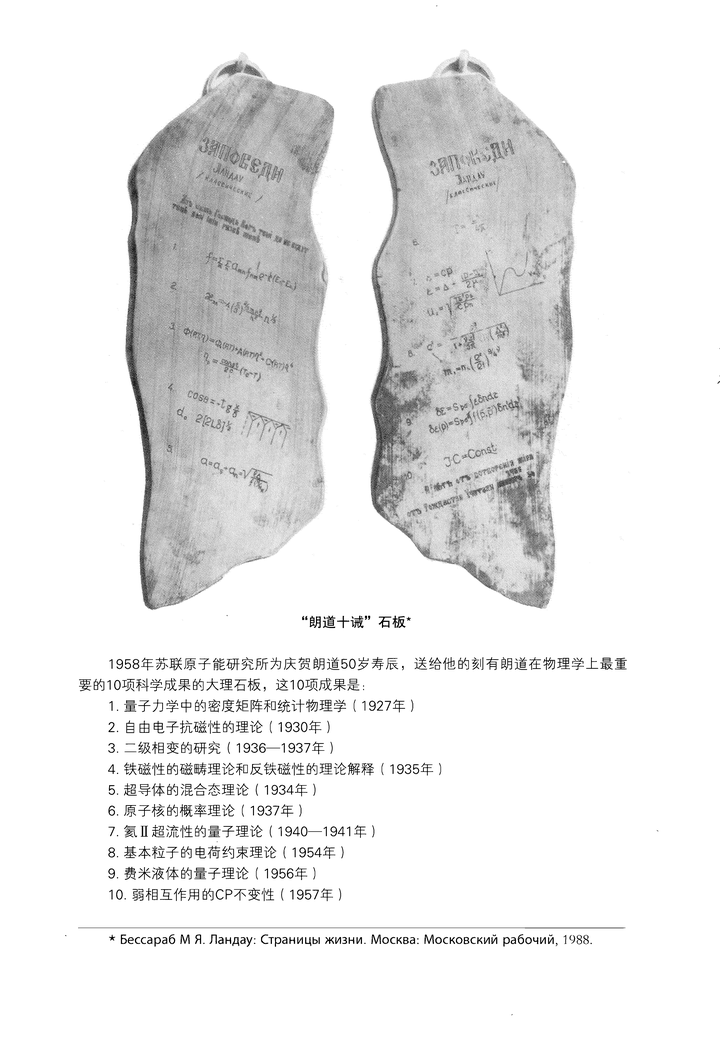 ЗАПОВЕДИ
ЛАНДАУ
/КЛАССИЧЕСКИЕ/
1.
2.
3.
4.
cosθ=
5.
ЗАПОВЕДИ
ЛАНДАУ
/КЛАССИЧЕСКИЕ/
8.
9.
10.
JC=Const
“朗道十诫”石板*
1958年苏联原子能研究所为庆贺朗道50岁寿辰，送给他的刻有朗道在物理学上最重
要的10项科学成果的大理石板，这10项成果是：
1. 量子力学中的密度矩阵和统计物理学（1927年）
2. 自由电子抗磁性的理论（1930年）
3. 二级相变的研究（1936—1937年）
4. 铁磁性的磁畴理论和反铁磁性的理论解释（1935年）
5. 超导体的混合态理论（1934年）
6. 原子核的概率理论（1937年）
7. 氦Ⅱ超流性的量子理论（1940—1941年）
8. 基本粒子的电荷约束理论（1954年）
9. 费米液体的量子理论（1956年）
10. 弱相互作用的CP不变性（1957年）
* Бессараб М Я. Ландау: Страницы жизни. Москва: Московский рабочий, 1988.